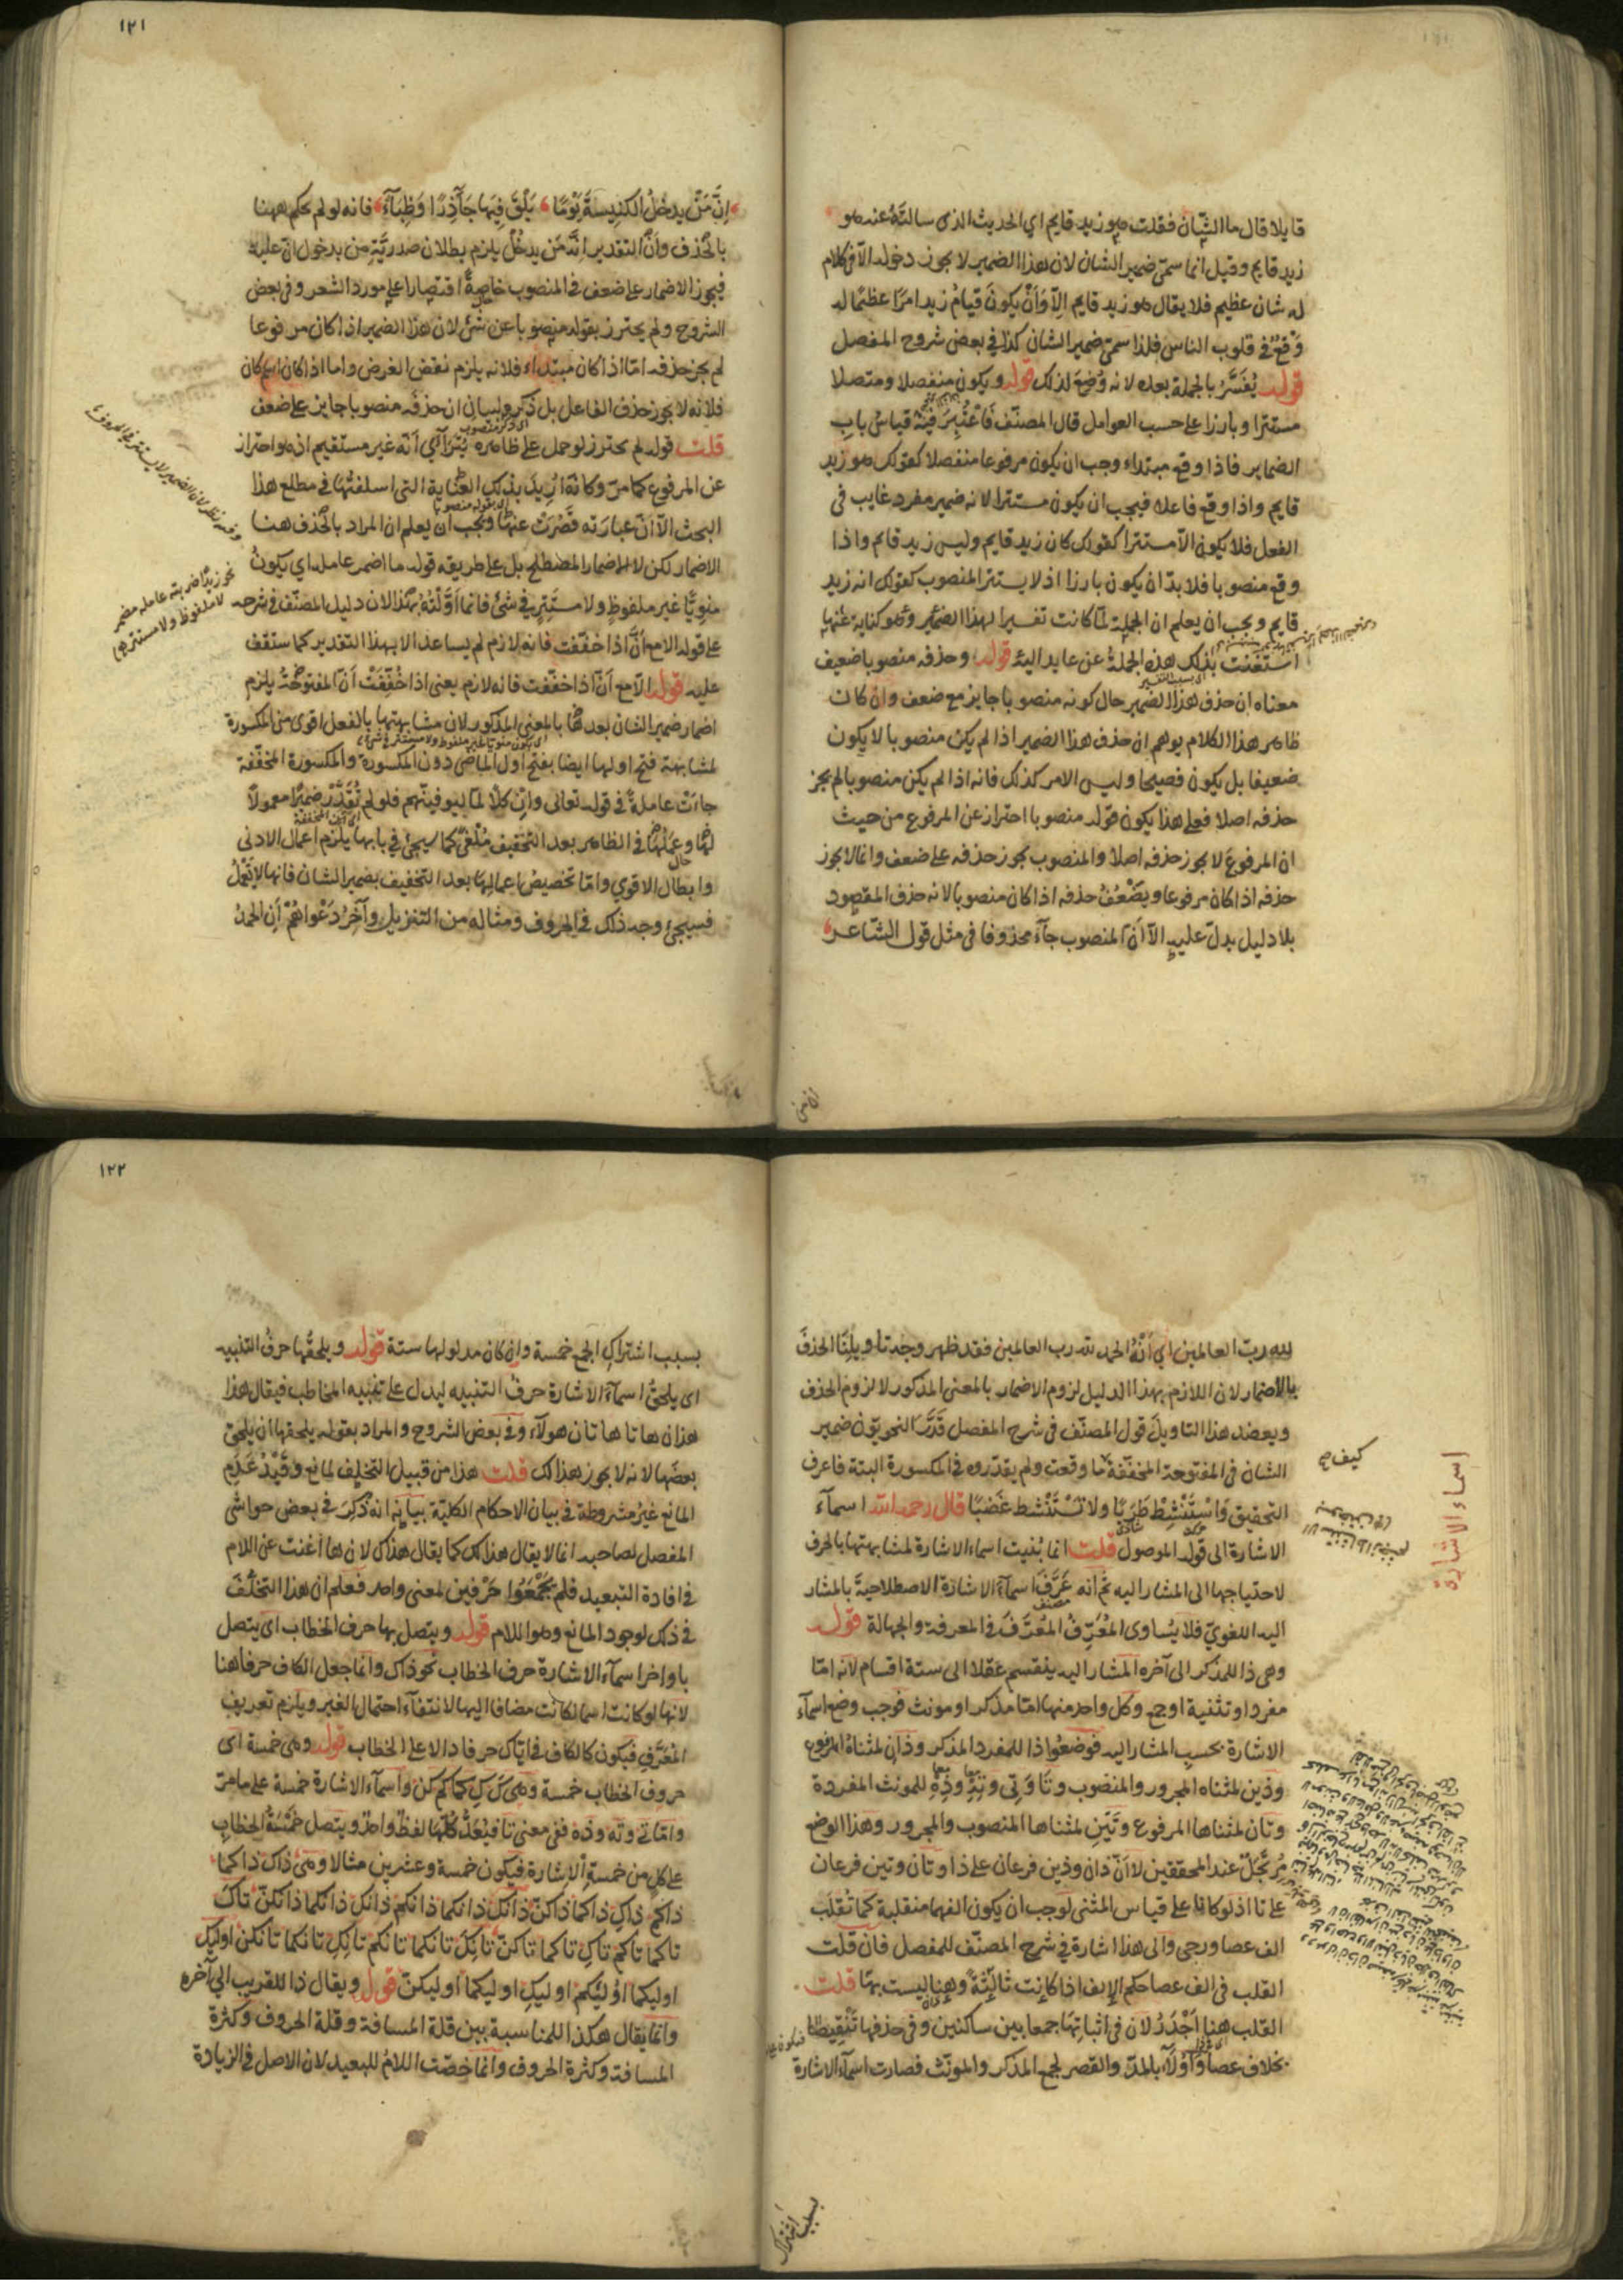 قايلا قال ما الشان فقلت هو زيد قايم اي الحديث الذى سالته عنه هو
زيد قايم وقيل انما سمى ضمير الشان لان هذا الضمير لا يجوز دخوله الا فى كلام
له شان عظيم فلا يقال هو زيد قايم الا وان يكون قيام زيد امرا عظيما له
وقع فى قلوب الناس فلذا سمى ضمير الشان كذا في بعض شروح المفصل
قوله يفسر بالجملة بعده لانه وضع لذلك قوله ويكون منفصلا ومتصلا
مستترا وبارزا على حسب العوامل قال المصنف فاعتبر فيه قياس باب
الضماير فاذا وقع مبتداء وجب ان يكون مرفوعا منفصلا كقولك هو زيد
قايم واذا وقع فاعلا فيجب ان يكون مستترا لانه ضمير مفرد غايب فى
الفعل فلا يكون الا مستترا كقولك كان زيد قايم وليس زيد قايم واذا
وقع منصوبا فلا بد ان يكون بارزا اذ لا يستتر المنصوب كقولك انه زيد
قايم ويجب ان يعلم ان الجملة لما كانت تفسيرا لهذا الضمير وهو كناية عنها
استغنت بذلك هذه الجملة عن عايد اليه قوله وحذفه منصوبا ضعيف
معناه ان حذف هذا الضمير حال كونه منصوبا جايز مع ضعف وان كان
ظاهر هذا الكلام يوهم ان حذف هذا الضمير اذا لم يكن منصوبا لا يكون
ضعيفا بل يكون فصيحا وليس الامر كذلك فانه اذا لم يكن منصوبا لم يجز
حذفه اصلا فعلى هذا يكون قوله منصوبا احتراز عن المرفوع من حيث
ان المرفوع لا يجوز حذفه اصلا والمنصوب يجوز حذفه على ضعف وانما لا يجوز
حذفه اذا كان مرفوعا ويضعف حذفه اذا كان منصوبا لانه حذف المقصود
بلا دليل يدل عليه الا ان المنصوب جاء محذوفا فى مثل قول الشاعر
١٢١
ان من يدخل الكنيسة يوما يلق فيها جآذرا وظباء فانه لو لم يحكم ههنا
بالحذف وان التقدير انه من يدخل يلزم بطلان صدرية من بدخول ان عليه
فيجوز الاضمار على ضعف فى المنصوب خاصة اقتصارا على مورد الشعر وفى بعض
الشروح ولم يحترز بقوله منصوبا عن شئ لان هذا الضمير اذا كان مرفوعا
لم يجز حذفه اما اذا كان مبتداء فلانه يلزم نقض الغرض واما اذا كان اسم كان
فلانه لا يجوز حذف الفاعل بل ذكره لبيان ان حذفه منصوبا جايز على ضعف
قلت قوله لم يحترز لو حمل على ظاهره يترآاى انه غير مستقيم اذ هو احتراز
عن المرفوع كما مر وكانه اريد بذلك العناية التى اسلفتها فى مطلع هذا
البحث الا ان عبارته قصرت عنها ويجب ان يعلم ان المراد بالحذف هنا
الاضمار لكن لا الاضمار المصطلح بل على طريقه قوله ما اضمر عامله اي يكون
منويا غير ملفوظ ولا مستتر في شئ فانما اولته بهذا لان دليل المصنف فى شرحه
على قوله الا مع ان اذا خففت فانه لازم لم يساعد الا بهذا التقدير كما ستقف
عليه قوله الا مع ان اذا خففت فانه لازم يعنى اذا خففت ان المفتوحة يلزم
اضمار ضمير الشان بعدها بالمعنى المذكور لان مشابهتها بالفعل اقوى من المكسورة
لمشابهة فتح اولها ايضا بفتح اول الماضى دون المكسورة والمكسورة المخففة
جاءت عاملة فى قوله تعالى وان كلا لما ليوفينهم فلو لم تقدر ضميرا معمولا
لها وعملها فى الظاهر بعد التخفيف ملغى كما سيجئ في بابها يلزم اعمال الادنى
وابطال الاقوي واما تخصيص اعمالها بعد التخفيف بضمير الشان فانها لا تعمل
فسيجئ وجه ذلك فى الحروف ومثاله من التنزيل وآخر دعوانهم ان الحمد
نحو زيدا ضربته عامله مضمر
لا ملفوظ ولا مستتر
لله رب العالمين اي انه الحمد لله رب العالمين فقد ظهر وجه تاويلنا الحذف
بالاضمار لان اللازم بهذا الدليل لزوم الاضمار بالمعنى المذكور لا لزوم الحذف
ويعضد هذا التاويل قول المصنف فى شرح المفصل قدر النحويون ضمير
الشان فى المفتوحة المخففة ما وقعت ولم يقدروه فى المكسورة البتة فاعرف
التحقيق واستنشط طربا ولا تستنشط غضبا قال رحمه الله اسمآء
الاشارة الى قوله الموصول قلت انما بنيت اسماء الاشارة لمشابهتها بالحرف
لاحتياجها الى المشار اليه ثم انه عرف اسمآء الاشارة الاصطلاحية بالمشار
اليه اللغوي فلا يساوى المعرف المعرف فى المعرفة والجهالة قوله
وهى ذا للمذكر الى آخره المشار اليه ينقسم عقلا الى ستة اقسام لانه اما
مفرد او تثنية او جمع وكل واحد منها اما مذكر او مونث فوجب وضع اسمآء
الاشارة بحسب المشار اليه فوضعوا ذا للمفرد المذكر وذان لمثناه المرفوع
وذين لمثناه المجرور والمنصوب وتا وتى وته وذه للمونث المفردة
وتان لمثناها المرفوع وتين لمثناها المنصوب والمجرور وهذا الوضع
مرتجل عند المحققين لا ان ذان وذين فرعان على ذا وتان وتين فرعان
على تا اذ لو كانا على قياس المثنى لوجب ان يكون الفهما منقلبة كما تقلب
الف عصا ورحى والى هذا اشارة في شرح المصنف للمفصل فان قلت
القلب فى الف عصا حكم الالف اذا كانت ثالثة وهنا ليست بها قلت
القلب هنا اجدر لان فى اثباتها جمعا بين ساكنين وفى حذفها تنقيصا
بخلاف عصا وآولآء بالمد والقصر لجمع المذكر والمونث فصارت اسمآء الاشارة
اسماء الاشارة
كيف
بسبب اشتراك
١٢٢
بسبب اشتراك الجمع خمسة وان كان مدلولها ستة قوله ويلحقها حرف التنبيه
اى يلحق اسمآء الاشارة حرف التنبيه ليدل على تنبيه المخاطب فيقال هذا
هذان هاتا هاتان هولآء وفى بعض الشروح والمراد بقوله يلحقها ان يلحق
بعضها لانه لا يجوز هذالك قلت هذا من قبيل التخلف لمانع وقيد عدم
المانع غير مشروطة فى بيان الاحكام الكلية بيانه انه ذكر فى بعض حواشى
المفصل لصاحبه انما لا يقال هذالك كما يقال هذاك لان ها اغنت عن اللام
فى افادة التبعيد فلم يجمعوا حرفين لمعنى واحد فعلم ان هذا التخلف
فى ذلك لوجود المانع وهو اللام قوله ويتصل بها حرف الخطاب اى يتصل
باواخر اسمآء الاشارة حرف الخطاب نحو ذاك وانما جعل الكاف حرفا هنا
لانها لو كانت اسما لكانت مضافا اليها لانتفآء احتمال الغير ويلزم تعريف
المعرف فيكون كالكاف فى اياك حرفا دالا على الخطاب قوله وهى خمسة اى
حروف الخطاب خمسة وهى ك ك كما كم كن واسمآء الاشارة خمسة على ما مر
واما تى وته وذه ففى معنى تا فيعد كلها لفظ واحد ويتصل خمسة الخطاب
على كل من خمسة الاشارة فيكون خمسة وعشرين مثالا وهى ذاك ذاكما
ذاكم ذاك ذاكما ذاكن ذانك ذانكما ذانكم ذانك ذانكما ذانكن تاك
تاكما تاكم تاك تاكما تاكن تانك تانكما تانكم تانك تانكما تانكن اوليك
اوليكما اوليكم اوليك اوليكما اوليكن قوله ويقال ذا للقريب الى آخره
وانما يقال هكذا للمناسبة بين قلة المسافة وقلة الحروف وكثرة
المسافة وكثرة الحروف وانما خصت اللام للبعيد لان الاصل فى الزيادة